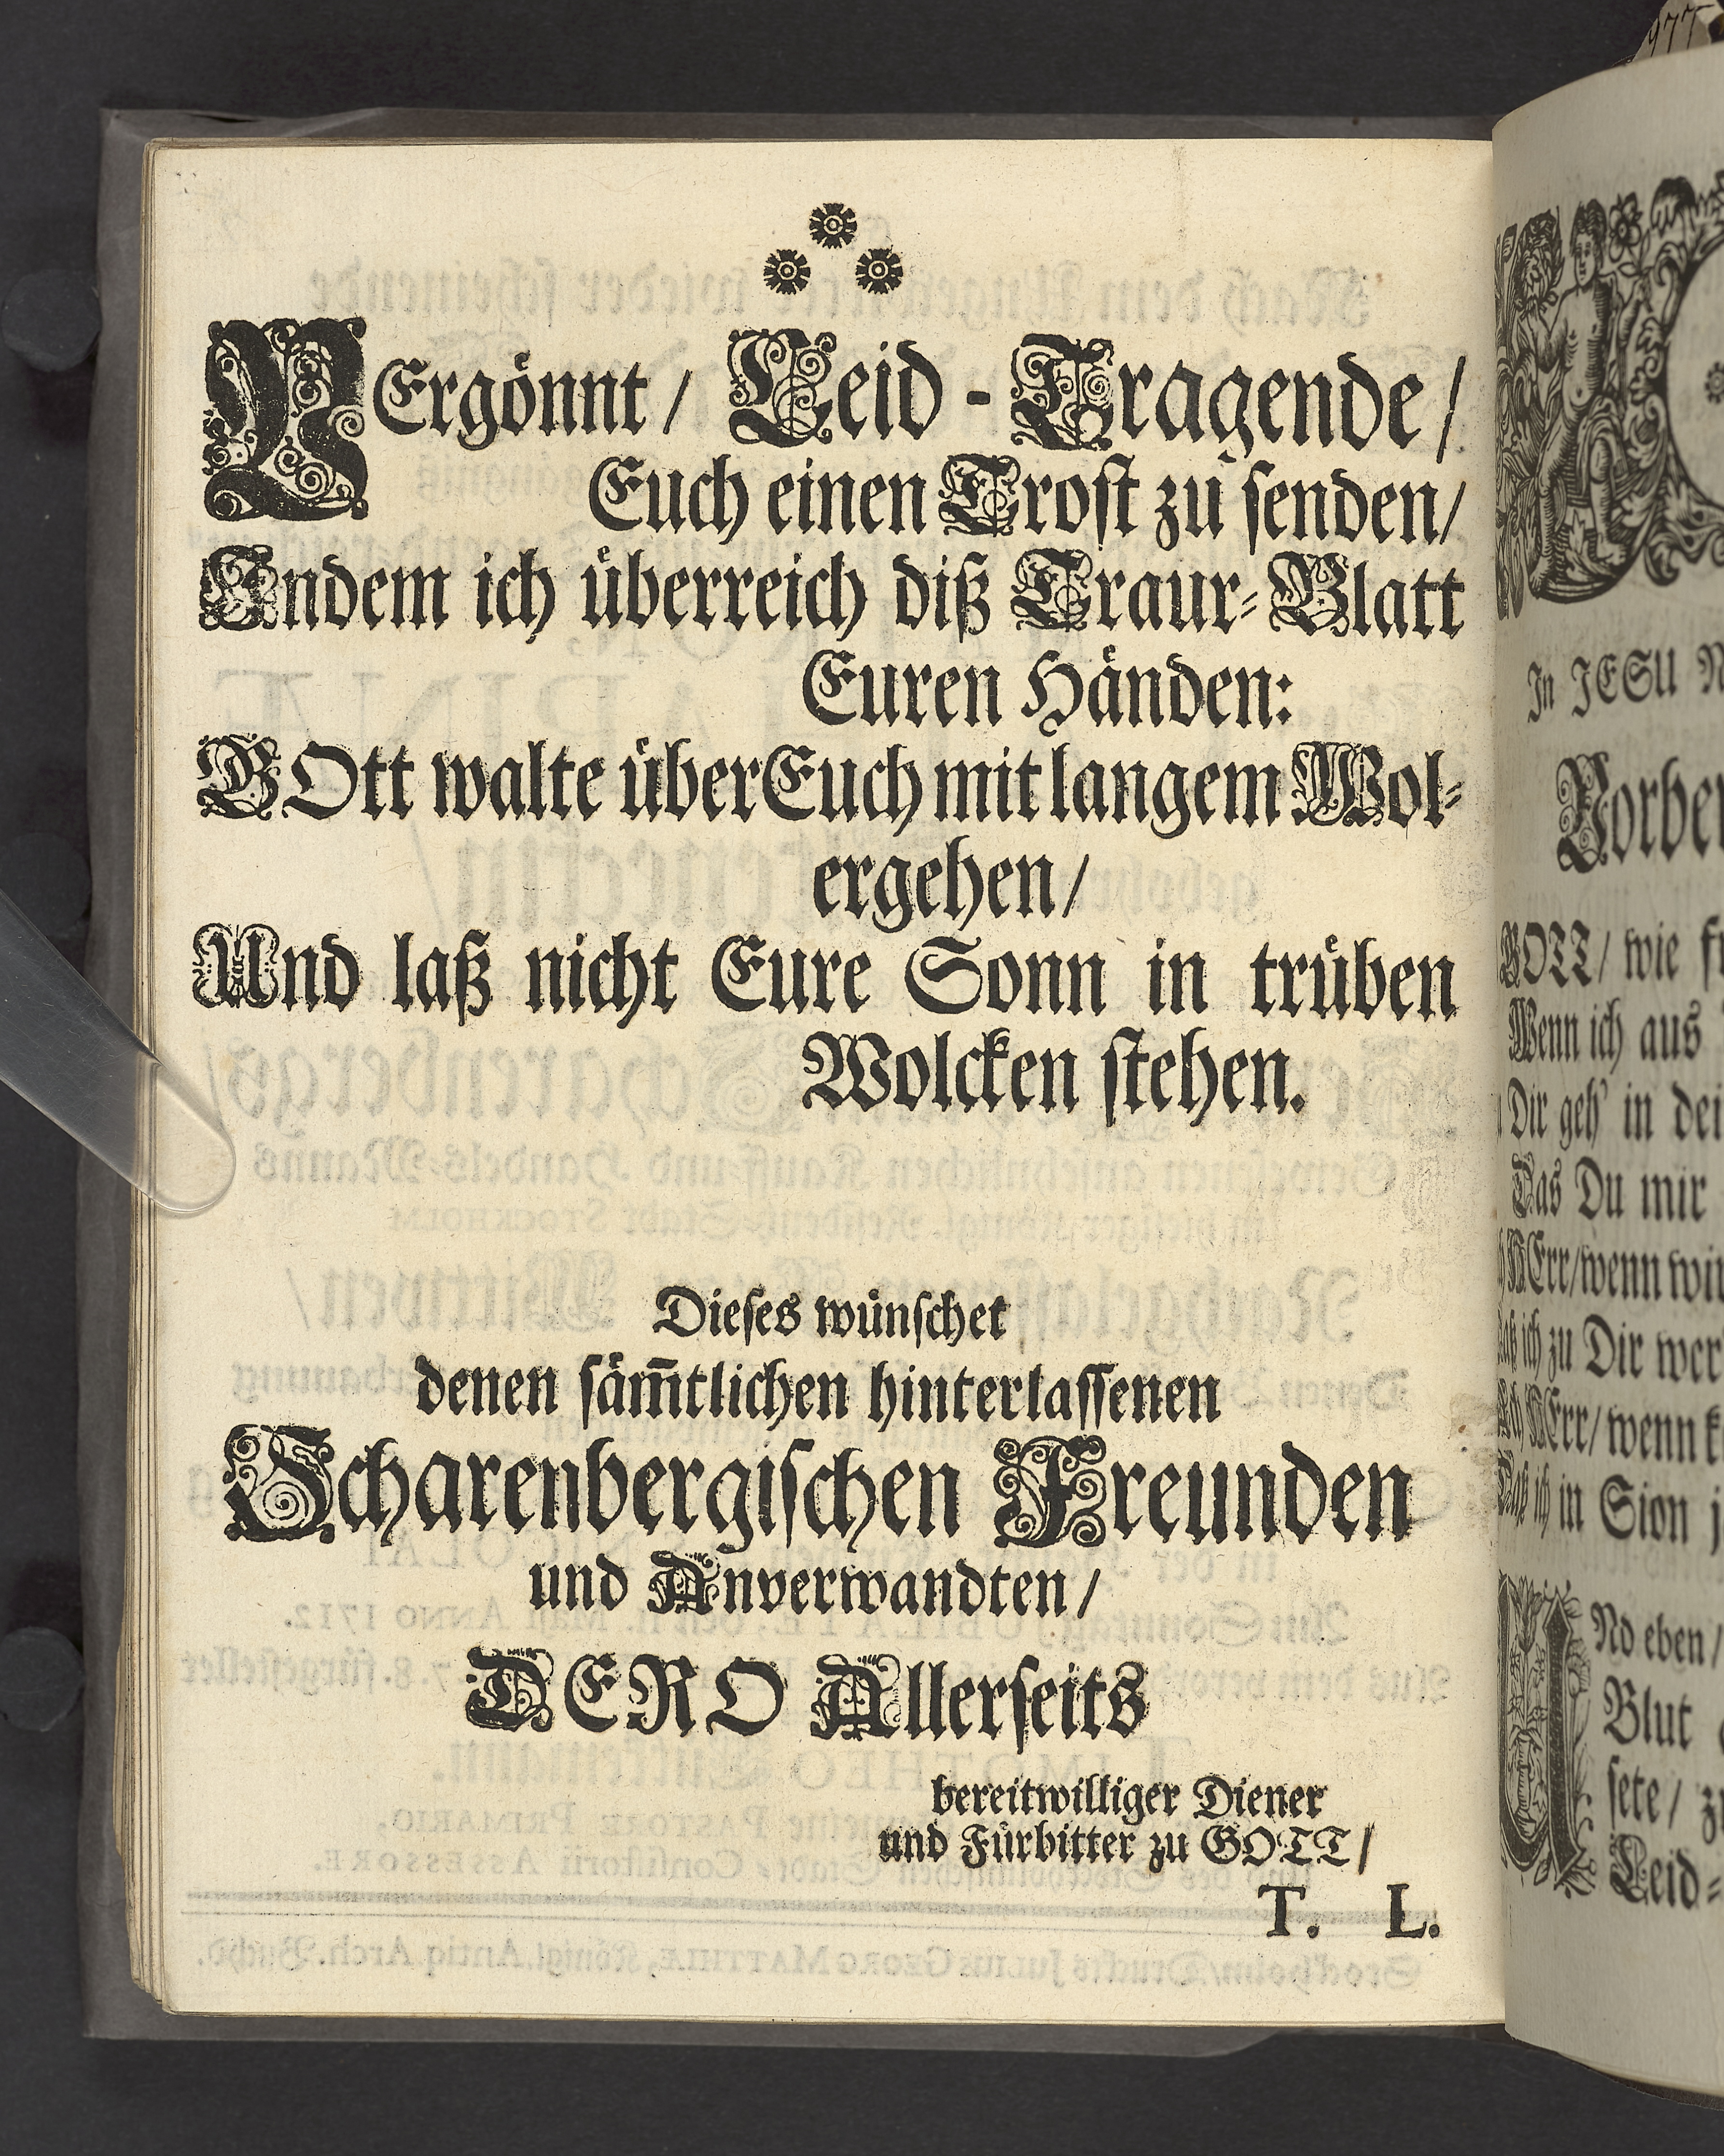 VErgönnt / Leid - Tragende /
Euch einen Trost zu senden /
Indem ich überreich diß Traur-Blatt
Euren Händen:
GOtt walte über Euch mit langem Wol-
ergehen /
Und laß nicht Eure Sonn in trüben
Wolcken stehen.
Dieses wünschet
denen säm̃tlichen hinterlassenen
Scharenbergischen Freunden
und Anverwandten /
DERO Allerseits
bereitwilliger Diener
und Fürbitter zu GOTT /
T. L.
977
In JESU
GOTT / wie
Wenn ich aus
Dir geh' in
Das Du mir
HErr / wenn
ich zu Dir
HErr / wenn
Daß ich in Sion
UNd eben /
Blut
Leid-